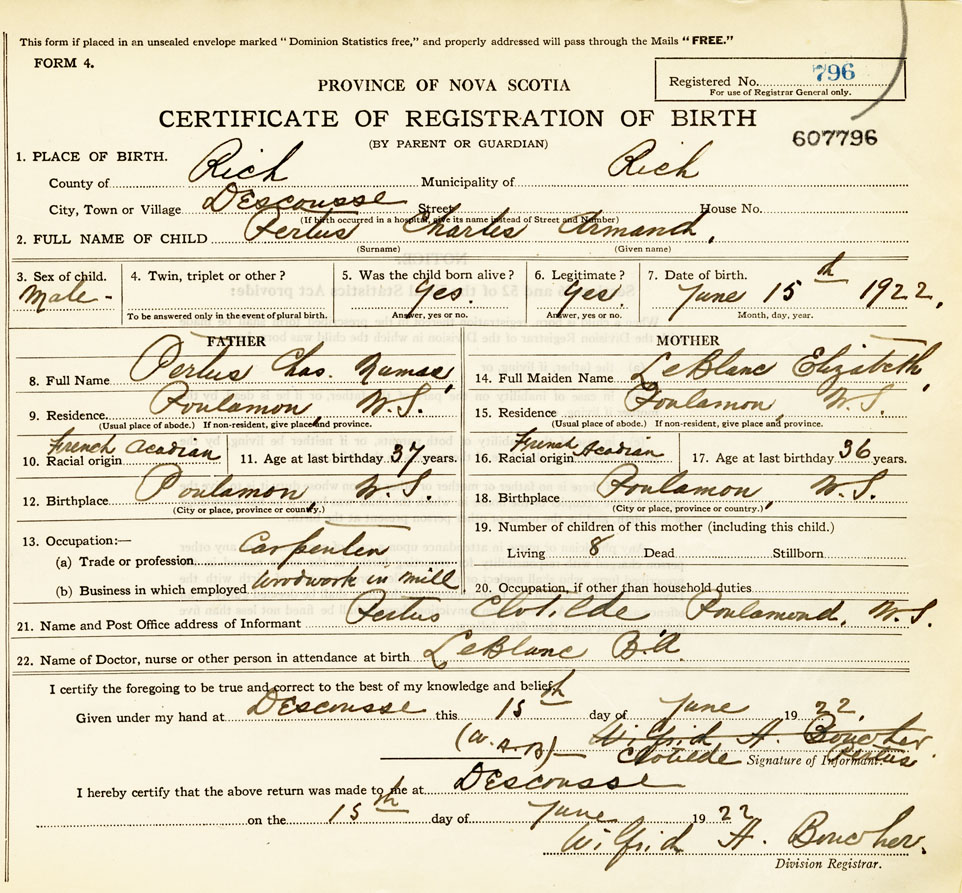 This form if placed in an unsealed envelope marked "Dominion Statistics free," and properly addressed will pass through the Mails "FREE."
FORM 4.
Registered No. 796
For use of Registrar General only.
PROVINCE OF NOVA SCOTIA
CERTIFICATE OF REGISTRATION OF BIRTH
607796
(BY PARENT OR GUARDIAN)
1. PLACE OF BIRTH.
County of Rich Municipality of Rich
City, Town or Village DEscousse Street House No.
(If birth occurred in a hospital, give its name instead of Street and Number)
2. FULL NAME OF CHILD Pertus Charles Armand,
(Surname) (Given name)
3. Sex of child. Male -
4. Twin, triplet or other?
To be answered only in the event of plural birth.
5. Was the child born alive? Yes.
Answer, yes or no.
6. Legitimate? Yes.
Answer, yes or no.
7. Date of birth. June 15th 1922,
Month, day, year.
FATHER
8. Full Name Pertus Chas.
9. Residence. Poulamon, N.S.
(Usual place of abode.) If non-resident, give place and province.
10. Racial origin French Acadian
11. Age at last birthday 37 years.
12. Birthplace Poulamon, N.S.
(City or place, province or country.)
13. Occupation:—
(a) Trade or profession Carpenter
(b) Business in which employed Woodwork in mill,
MOTHER
14. Full Maiden Name LeBlanc Elizabeth,
15. Residence Poulamon, N.S.
(Usual place of abode.) If non-resident, give place and province.
16. Racial origin French Acadian
17. Age at last birthday 36 years.
18. Birthplace Poulamon, N.S.
(City or place, province or country.)
19. Number of children of this mother (including this child.)
Living 8 Dead Stillborn
20. Occupation, if other than household duties
21. Name and Post Office address of Informant Pertus Clotilde Poulamond, N.S.
22. Name of Doctor, nurse or other person in attendance at birth LeBlanc
I certify the foregoing to be true and correct to the best of my knowledge and belief.
Given under my hand at DEscousse this 15th day of June 1922,
(W.A.B) Wilfrid A. Boucher
Clotilde Pertus.
Signature of Informant.
I hereby certify that the above return was made to me at DEscousse
on the 15th day of June 1922
Wilfrid A. Boucher.
Division Registrar.